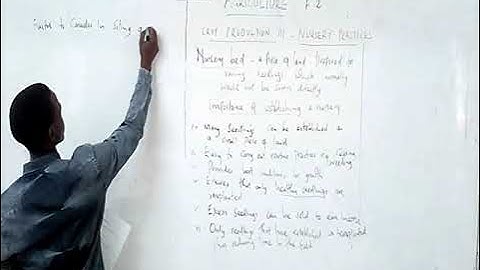 Factors to Consider in Siting a
AGRICULTURE F.2
CROP PRODUCTION III - NURSERY PRACTICES
Nursery bed - a piece of land prepared for
raising seedlings which normally
would not be sown directly
Importance of establishing a nursery
Many Seedlings can be established on
a small piece of land
Easy to carry out routine practices e.g.
Provides best conditions for growth
Ensures that only healthy seedlings are
transplanted
Excess seedlings can be sold to earn income
Only seedlings that have established is transplanted
thus reducing time in the field